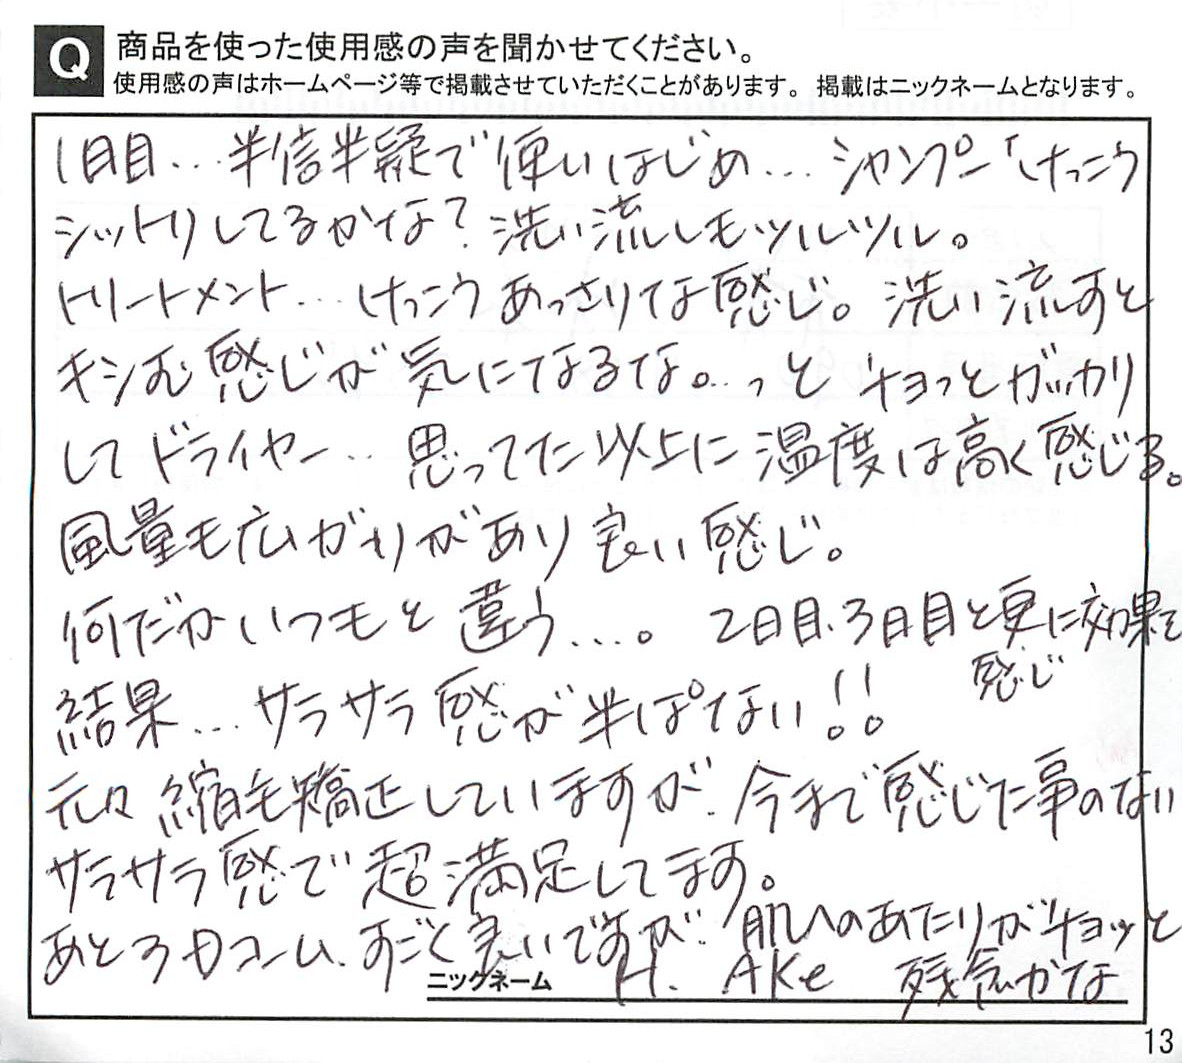 Q 商品を使った使用感の声を聞かせてください。
使用感の声はホームページ等で掲載させていただくことがあります。 掲載はニックネームとなります。
1日目…半信半疑で使いはじめ…シャンプー「けっこう
シットリしてるかな？洗い流しもツルツル。
トリートメント…けっこうあっさりな感じ。洗い流すと
キシむ感じが気になるな。…っとチョっとガッカリ
してドライヤー…思ってた以上に温度は高く感じる。
風量も広がりがあり良い感じ。
何だかいつもと違う…。2日目、3日目と更に効果を
感じ
結果…サラサラ感が半ぱない!!
元々縮毛矯正していますが、今まで感じた事のない
サラサラ感で超満足してます。
あとろ口コーム、すごく良いですが、肌へのあたりがチョッと
残念かな
ニックネーム H. AKe
13